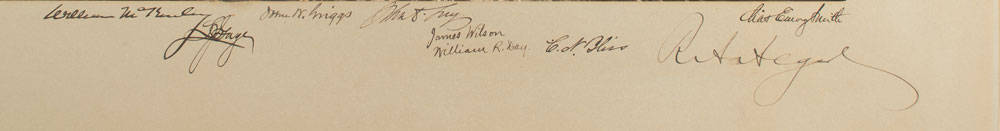 William McKinley
L J Gage
John W. Griggs
James Wilson
William R. Day.
C. N. Bliss
Chas Emory Smith
R A Alger